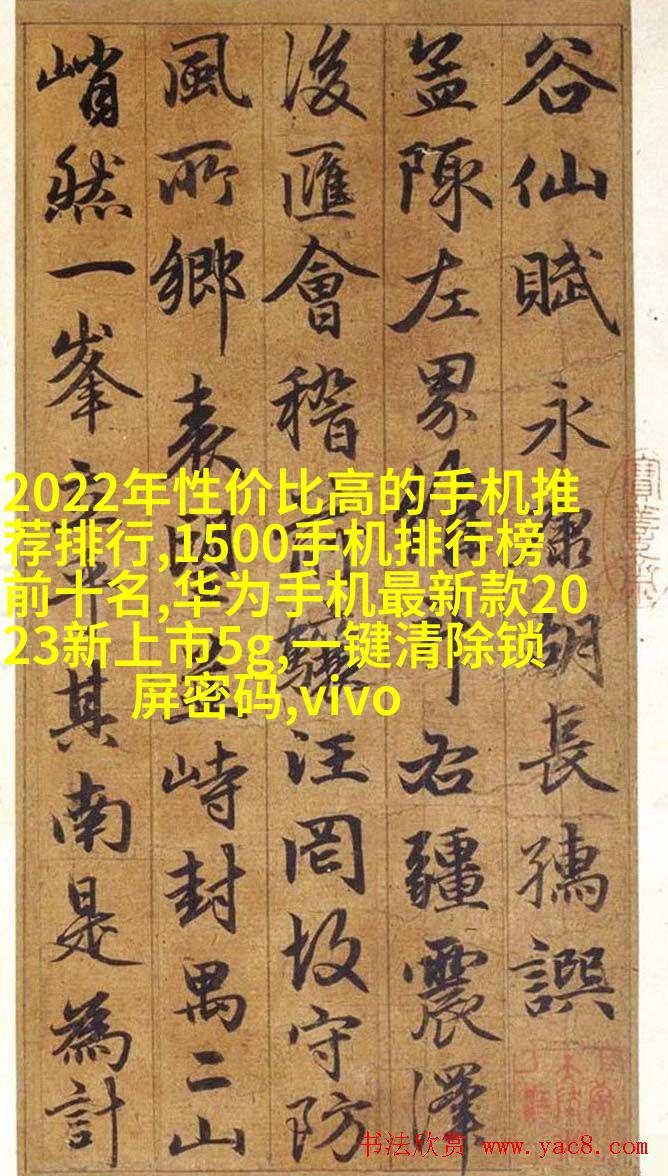 谷仙賦永康胡長孺譔
盖陳左界右疆震澤
後匯會稽汪罔故守防
風所鄉表峙封禺二山
峭然一峯其南是為計
2022年性价比高的手机推
荐排行,1500手机排行榜
前十名,华为手机最新款20
23新上市5g,一键清除锁
屏密码,vivo
书法欣赏 www.yac8.com